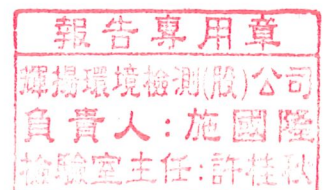 報告專用章
輝揚環境檢測(股)公司
負責人:施國隆
檢驗室主任:許桂